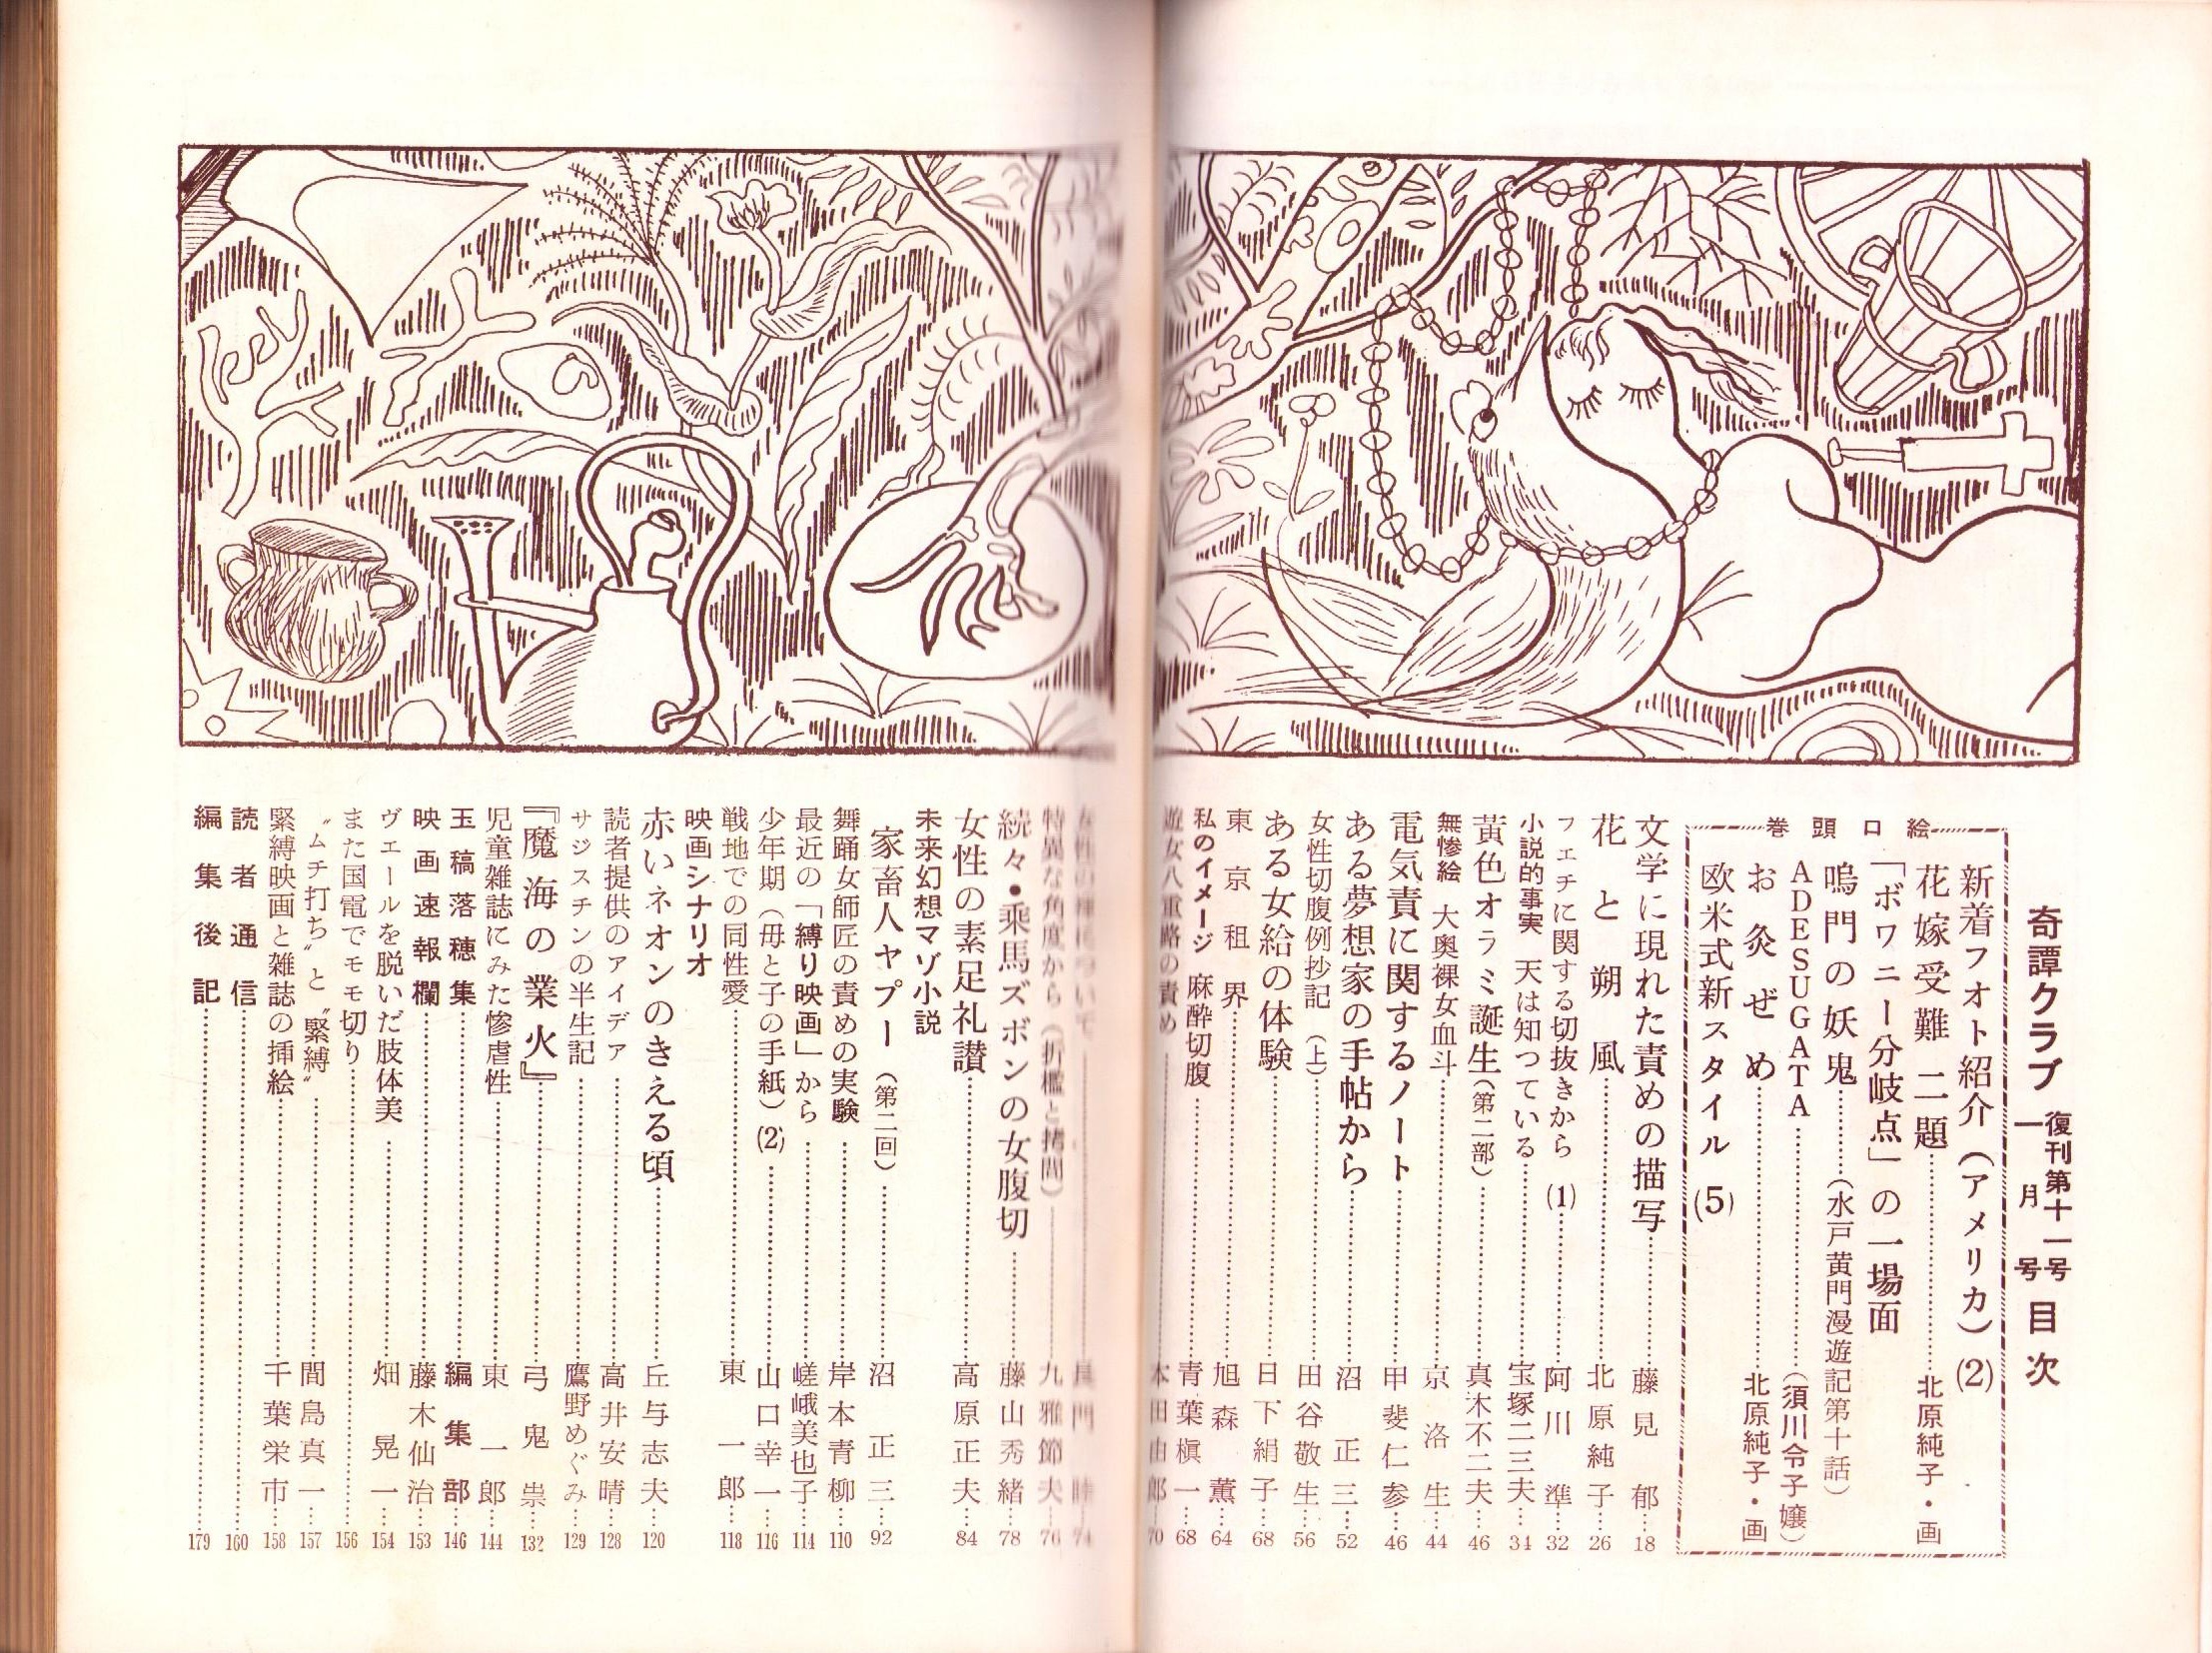 奇譚クラブ 復刊第十一号 一月号 目次
巻頭口絵
新着フオト紹介(アメリカ)(2)
花嫁受難 二題……北原純子・画
「ボワニー分岐点」の一場面
鳴門の妖鬼……(水戸黄門漫遊記第十話)
ADESUGATA……(須川令子嬢)
お灸ぜめ……北原純子・画
欧米式新スタイル (5)
文学に現れた責めの描写……藤見郁…18
花と朔風……北原純子…26
フエチに関する切抜きから (1)……阿川準…32
小説的事実 天は知つている……宝塚二三夫…34
黄色オラミ誕生(第二部)……真木不二夫…46
無惨絵 大奥裸女血斗……京洛生…44
電気責に関するノート……甲斐仁参…46
ある夢想家の手帖から……沼正三…52
女性切腹例抄記 (上)……田谷敬生…56
ある女給の体験……日下絹子…68
東京租界……旭森薫…64
私のイメージ 麻酔切腹……青葉槇一…68
遊女八重路の責め……本田由郎…70
……長門 …74
特異な角度から(折檻と拷問)……九雅節夫…76
続々・乗馬ズボンの女腹切……藤山秀緒…78
女性の素足礼讃……高原正夫…84
未来幻想マゾ小説
家畜人ヤプー(第二回)……沼正三…92
舞踊女師匠の責めの実験……岸本青柳…110
最近の「縛り映画」から……嵯峨美也子…114
少年期(母と子の手紙)(2)……山口幸一…116
戦地での同性愛……東一郎…118
映画シナリオ
赤いネオンのきえる頃……丘与志夫…120
読者提供のアイデア……高井安晴…128
サジスチンの半生記……鷹野めぐみ…129
『魔海の業火』……弓鬼祟…132
児童雑誌にみた惨虐性……東一郎…144
玉稿落穂集……編集部…146
映画速報欄……藤木仙治…153
ヴエールを脱いだ肢体美……畑晃一…154
また国電でモモ切り……156
〝ムチ打ち〟と〝緊縛〟……間島真一…157
緊縛映画と雑誌の挿絵……千葉栄市…158
読者通信……160
編集後記……179